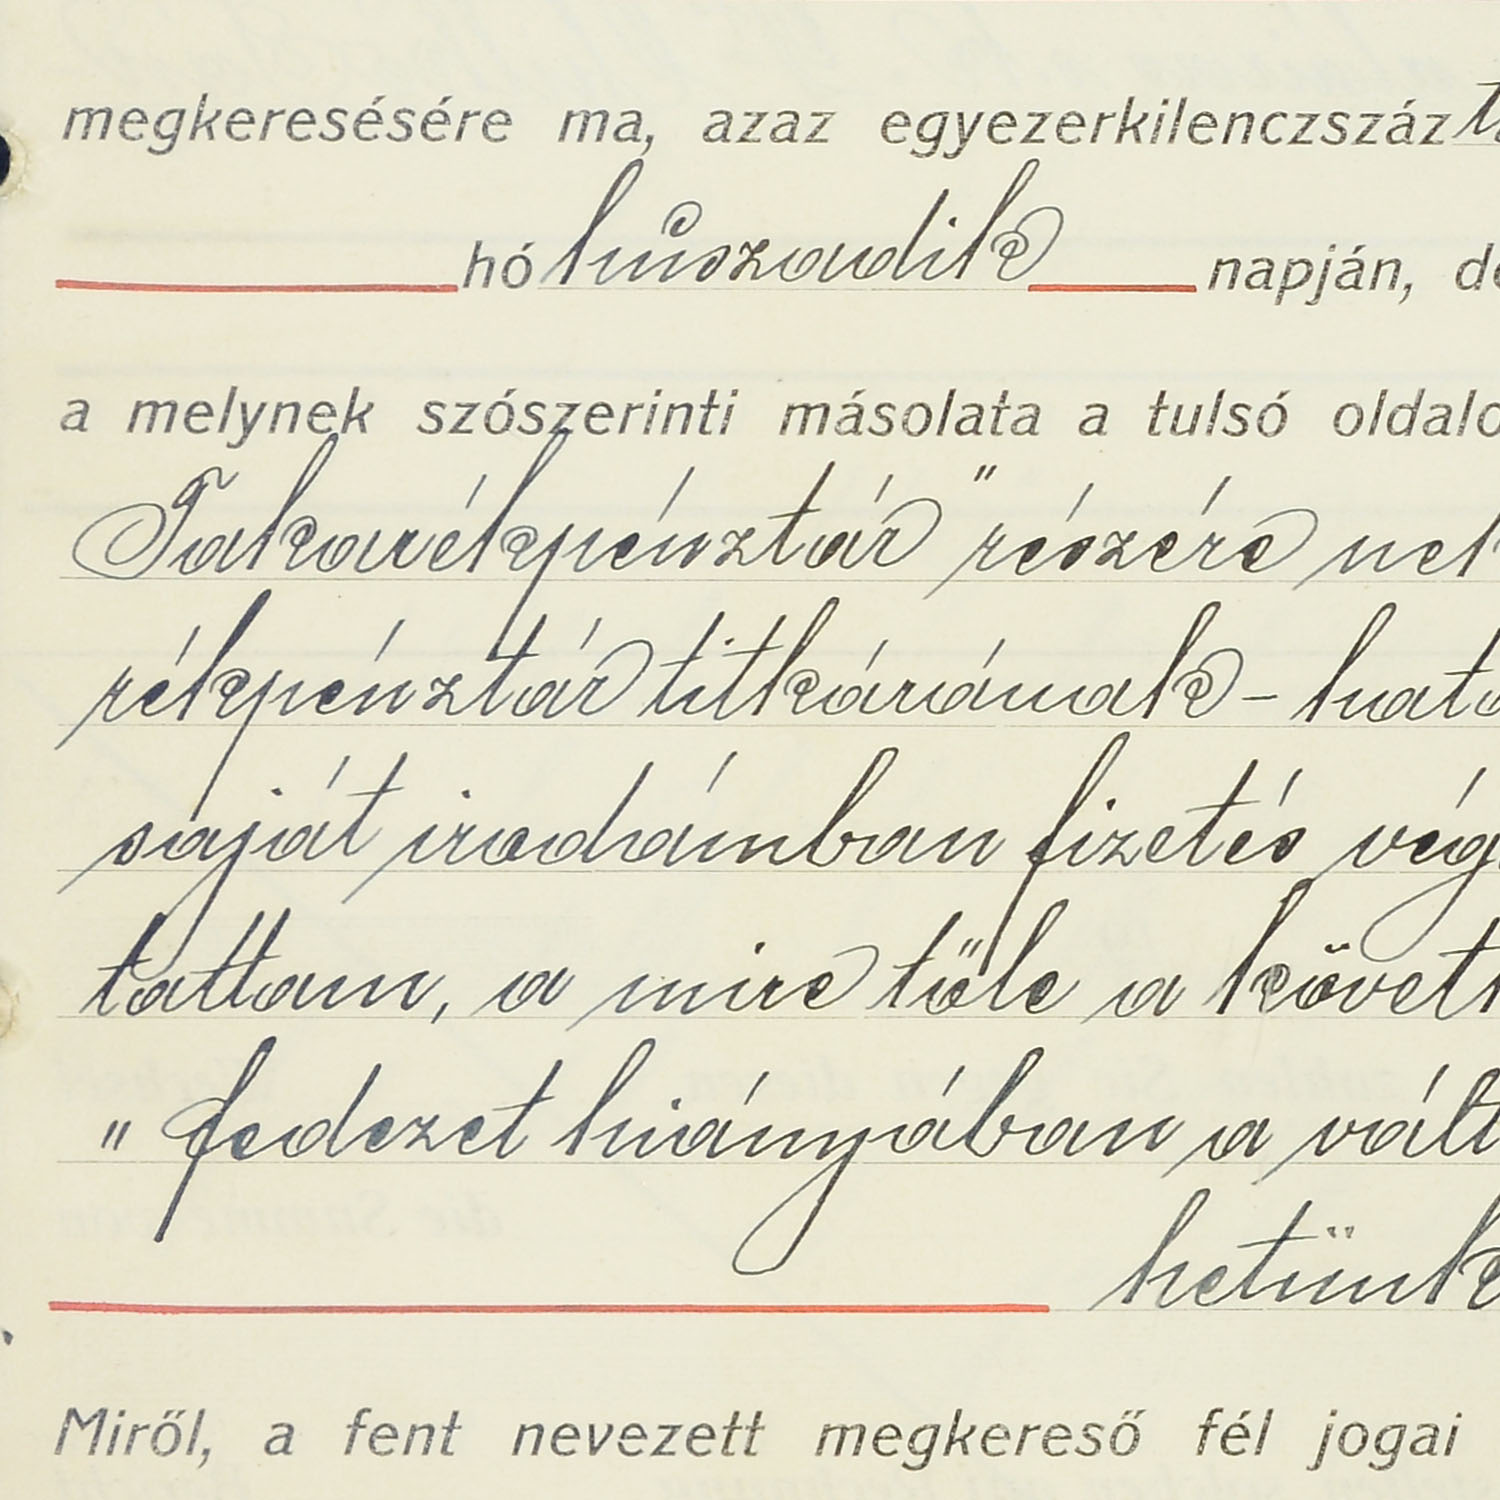 megkeresésére ma, azaz egyezerkilenczszáz
hó huszadik napján, de
a melynek szószerinti másolata a tulsó oldalo
Takarékpénztár" részére nek
rékpénztár titkárának - hato
saját irodámban fizetés vég
tattam, a mire tőle a követk
"fedezet hiányában a vált
hetünk
Miről, a fent nevezett megkereső fél jogai